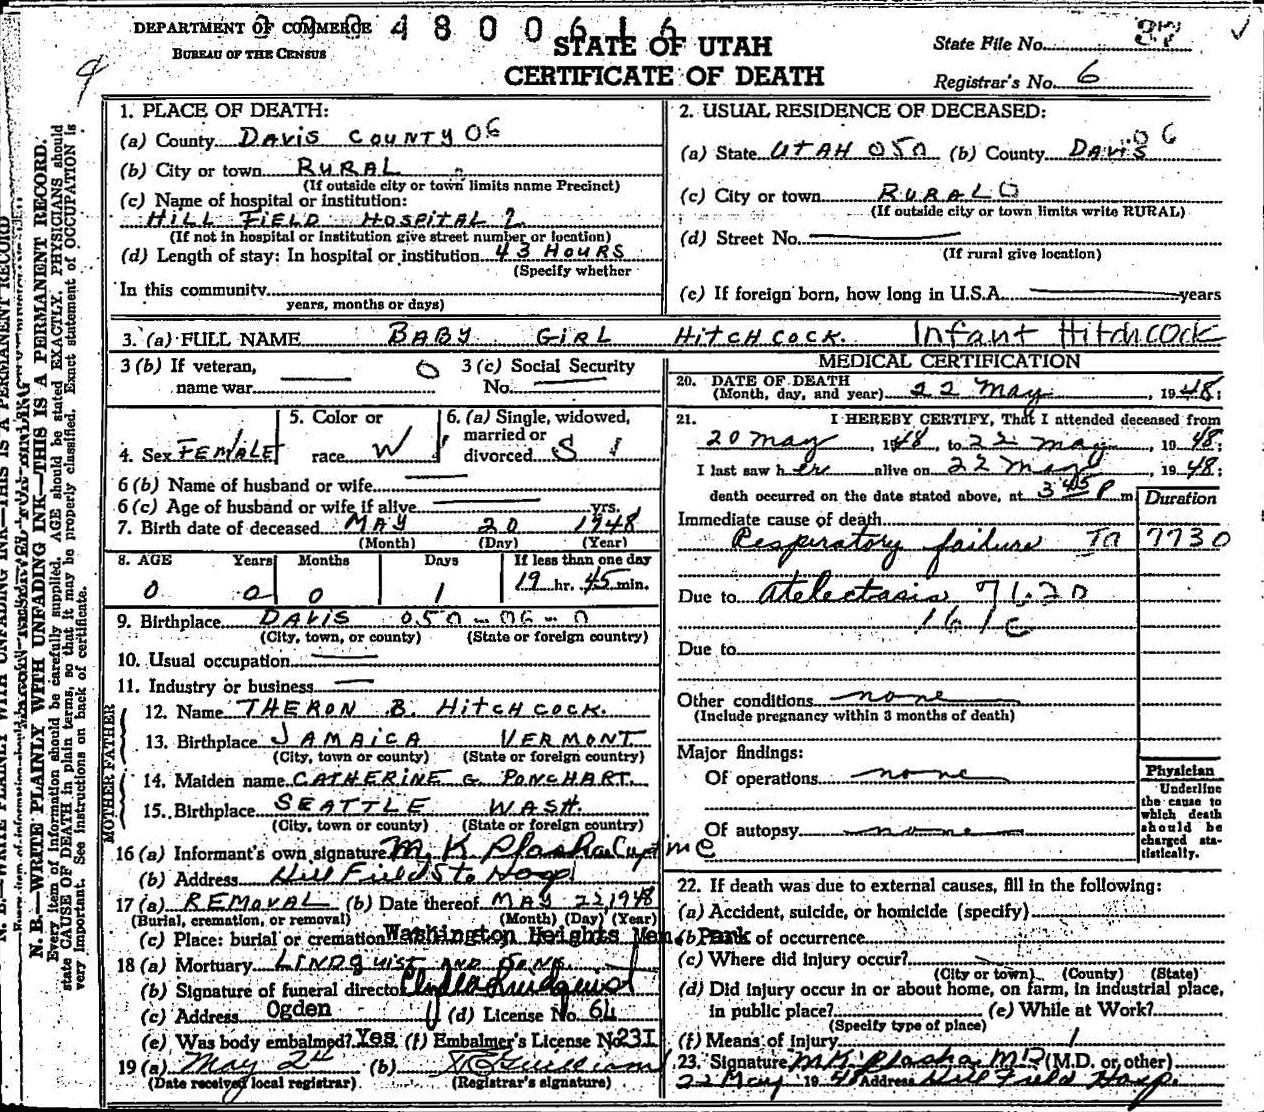 DEPARTMENT OF COMMERCE
BUREAU OF THE CENSUS
4800616
STATE OF UTAH
CERTIFICATE OF DEATH
State File No.
Registrar's No. 6
N. B.—WRITE PLAINLY WITH UNFADING INK—THIS IS A PERMANENT RECORD.
Every item of information should be carefully supplied. AGE should be stated EXACTLY. PHYSICIANS should
state CAUSE OF DEATH in plain terms, so that it may be properly classified. Exact statement of OCCUPATION is
very important. See instructions on back of certificate.
1. PLACE OF DEATH:
(a) County DAVIS COUNTY 06
(b) City or town RURAL
(If outside city or town limits name Precinct)
(c) Name of hospital or institution:
HILL FIELD HOSPITAL 2
(If not in hospital or institution give street number or location)
(d) Length of stay: In hospital or institution 43 HOURS
(Specify whether
In this community
years, months or days)
2. USUAL RESIDENCE OF DECEASED:
(a) State UTAH 050 (b) County DAVIS 06
(c) City or town RURAL 0
(If outside city or town limits write RURAL)
(d) Street No.
(If rural give location)
(e) If foreign born, how long in U.S.A. years
3. (a) FULL NAME BABY GIRL HITCHCOCK. Infant Hitchcock
3 (b) If veteran, name war 0
3 (c) Social Security No.
4. Sex FEMALE
5. Color or race W
6. (a) Single, widowed, married or divorced S 1
6 (b) Name of husband or wife
6 (c) Age of husband or wife if alive yrs.
7. Birth date of deceased MAY 20 1948
(Month) (Day) (Year)
8. AGE Years Months Days If less than one day
0 0 0 1 19 hr. 45 min.
9. Birthplace DAVIS 050-06-0
(City, town, or county) (State or foreign country)
10. Usual occupation
11. Industry or business
FATHER
12. Name THERON B. HITCHCOCK.
13. Birthplace JAMAICA VERMONT
(City, town or county) (State or foreign country)
MOTHER
14. Maiden name CATHERINE G. PONCHART.
15. Birthplace SEATTLE WASH.
(City, town or county) (State or foreign country)
16 (a) Informant's own signature M. K. Plasha Capt MC
(b) Address Hill Field Sta Hosp
17 (a) REMOVAL (b) Date thereof MAY 22, 1948
(Burial, cremation, or removal) (Month) (Day) (Year)
(c) Place: burial or cremation Washington Heights Mem. Park
18 (a) Mortuary LINDQUIST AND SONS.
(b) Signature of funeral director
(c) Address Ogden (d) License No. 64
(e) Was body embalmed? Yes (f) Embalmer's License No 231
19 (a) May 24 (b)
(Date received local registrar) (Registrar's signature)
MEDICAL CERTIFICATION
20. DATE OF DEATH
(Month, day, and year) 22 May, 1948;
21. I HEREBY CERTIFY, That I attended deceased from
20 May, 1948, to 22 May 1948;
I last saw her alive on 22 May 1948;
death occurred on the date stated above, at 3 45 P m.
Duration
Immediate cause of death
Respiratory failure 7730
Due to atelectasis 71.20
161c
Due to
Other conditions none
(Include pregnancy within 3 months of death)
Major findings:
Of operations none
Of autopsy none
Physician
Underline the cause to which death should be charged statistically.
22. If death was due to external causes, fill in the following:
(a) Accident, suicide, or homicide (specify)
(b) Date of occurrence
(c) Where did injury occur?
(City or town) (County) (State)
(d) Did injury occur in or about home, on farm, in industrial place,
in public place? (e) While at Work?
(Specify type of place)
(f) Means of Injury
23. Signature M K Plasha MD (M.D. or other)
22 May 1948 Address Hill Field Hosp.